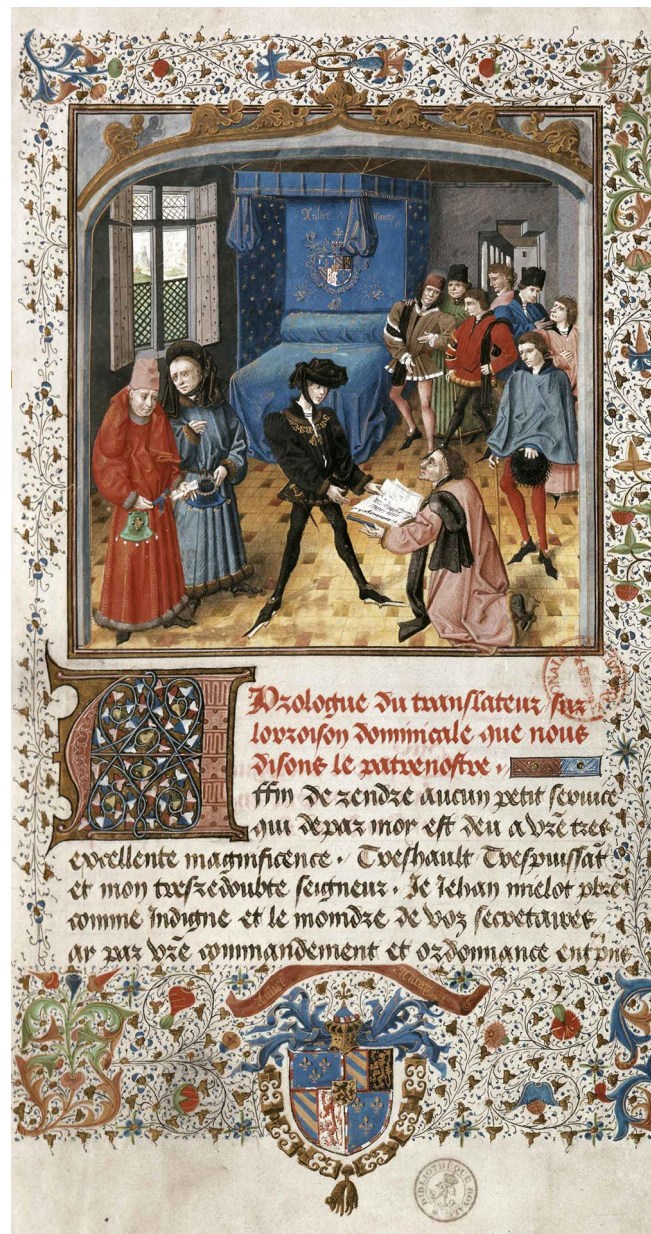 Aultre Naray
Prologue du translateur sur
lorzoison dominicale que nous
disons le patrenostre
Affin de rendre aucun petit service
qui de par moy est deu a vr̃e tres
excellente magnificence. Treshault Trespuissãt
et mon tresredoubte seigneur. Je Jehan mielot pbr̃e
comme Indigne et le moindre de voz secretaires
ay par vr̃e commandement et ordonnance
Aultre Naray
BIBLIOTHEQUE ROYALE